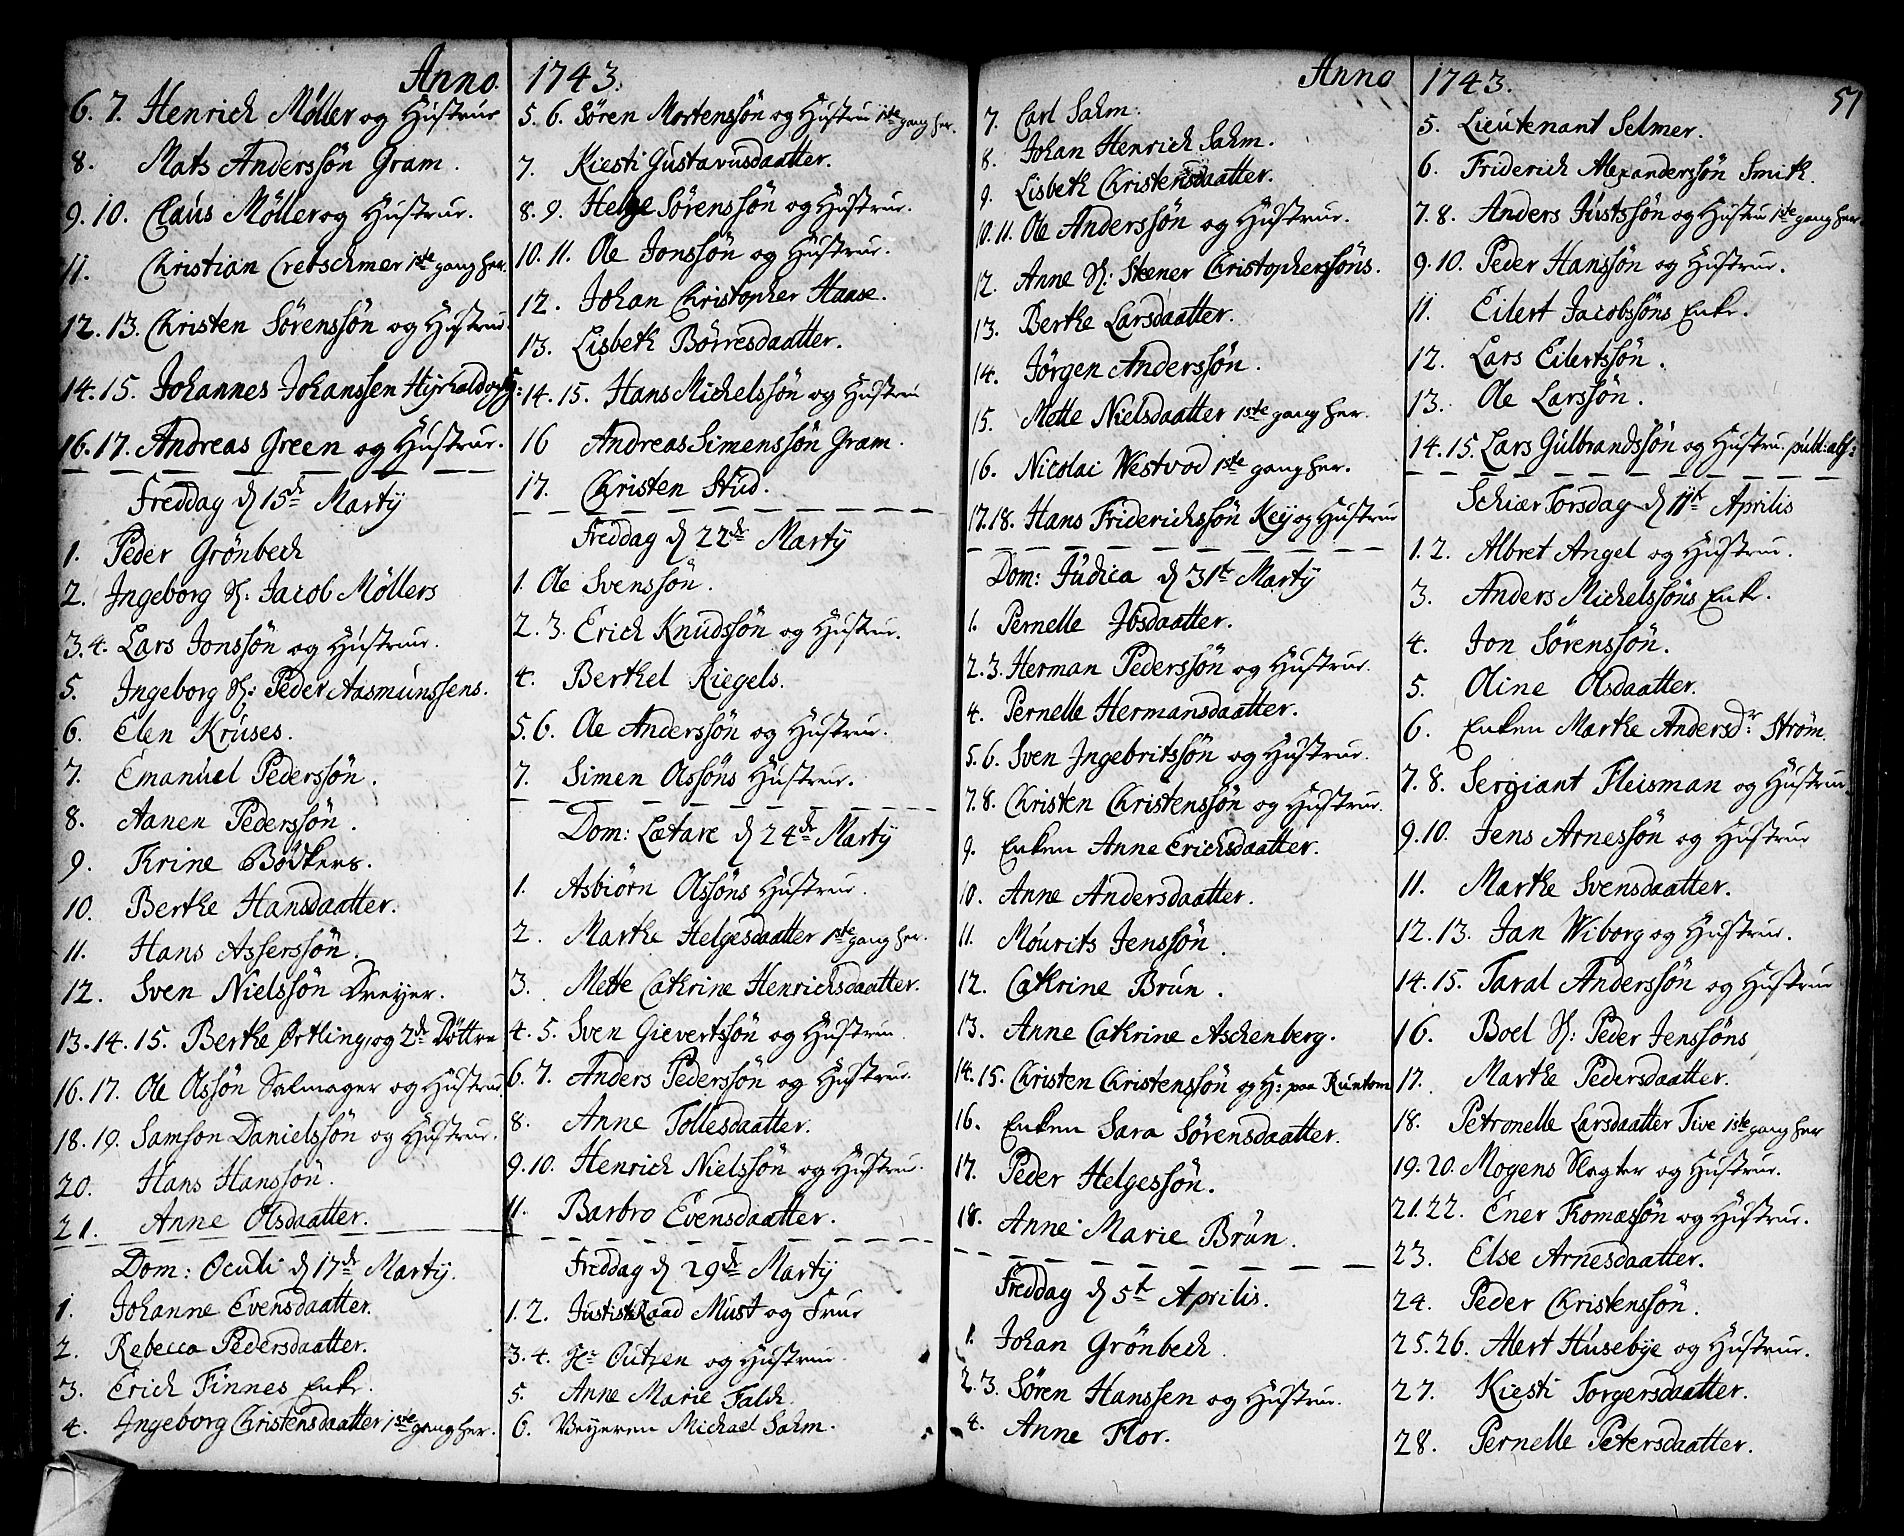 Anno 1743.
6. 7. Henrich Møller og Hustrue
8. Mats Anderssøn Gram.
9. 10. Claus Møller og Hustrue.
11. Christian Cretschmer 1ste gang her.
12. 13. Christen Sørenssøn og Hustrue.
14. 15. Johannes Johanssen
16. 17. Andreas Green og Hustrue.
Freddag d. 15de Martij
1. Peder Grönbech
2. Ingeborg Sl: Jacob Møllers
3. 4. Lars Jonssøn og Hustrue.
5. Ingeborg Sl: Peder Aasmunssens.
6. Elen Kruses.
7. Emanuel Pederssøn.
8. Aanen Pederssøn.
9. Trine Bödkers.
10. Berthe Hansdaatter.
11. Hans Asserssøn.
12. Sven Nielssøn Dreyer.
13. 14. 15. Berthe Ørtling og 2de Døttre
16. 17. Ole Olssøn Salmager og Hustrue.
18. 19. Samson Danielssøn og Hustrue.
20. Hans Hanssøn.
21. Anne Olsdaatter.
Dom: Oculi d. 17de Martij.
1. Johanne Evensdaatter.
2. Rebecca Pedersdaatter.
3. Erich Finnes Enke.
4. Ingeborg Christensdaatter 1ste gang her.
5. 6. Søren Mortenssøn og Hustru 1ste gang her.
7. Kiesti Gustavusdaatter.
8. 9. Helge Sørenssøn og Hustrue.
10. 11. Ole Jonssøn og Hustrue.
12. Johan Christopher Haase.
13. Lisbeth Börresdaatter.
14. 15. Hans Michelssøn og Hustru
16 Andreas Simenssøn Gram.
17. Christen Stud.
Freddag d. 22de Martij
1. Ole Svenssøn.
2. 3. Erich Knudssøn og Hustrue.
4. Berthel Riegels.
5. 6. Ole Anderssøn og Hustrue.
7. Simen Olssøns Hustrue.
Dom: Lætare d. 24de Martij
1. Asbiørn Olssøns Hustrue.
2. Marthe Helgesdaatter 1ste gang her.
3. Mette Cathrine Henrichsdaatter.
4. 5. Sven Gievertssøn og Hustrue
6. 7. Anders Pederssøn og Hustrue.
8. Anne Tollesdaatter.
9. 10. Henrich Nielssøn og Hustrue.
11. Barbro Evensdaatter.
Freddag d. 29de Martij
1. 2. Justits Raad Must og Frue
3. 4. Hr Outzen og Hustrue.
5. Anne Marie Falch.
6. Veyeren Michael Sahm.
Anno 1743.
51
7. Carl Sahm.
8. Johan Henrich Sahm.
9. Lisbeth Christensdaatter.
10. 11. Ole Anderssøn og Hustrue.
12. Anne Sl: Steener Christopherssøns.
13. Berthe Larsdaatter.
14. Jörgen Anderssøn.
15. Mette Nielsdaatter 1ste gang her.
16. Nicolai Westvod 1ste gang her.
17. 18. Hans Friderichssøn Keij og Hustrue
Dom: Judica d. 31te Martij
1. Pernelle Ibsdaatter.
2. 3. Herman Pederssøn og Hustrue.
4. Pernelle Hermansdaatter.
5. 6. Sven Ingebritssøn og Hustrue.
7. 8. Christen Christenssøn og Hustrue.
9. Enken Anne Erichsdaatter.
10. Anne Andersdaatter.
11. Mourits Jenssøn.
12. Cathrine Brun.
13. Anne Cathrine Aschenberg.
14. 15. Christen Christenssøn og H: paa Runtom
16. Enken Sara Sörensdaatter.
17. Peder Helgessøn.
18. Anne Marie Brun.
Freddag d. 5te Aprilis.
1. Johan Grönbech.
2. 3. Søren Hanssen og Hustrue.
4. Anne Flor.
5. Lieutenant Selmer.
6. Friderich Alexanderssøn Smith.
7. 8. Anders Justssøn og Hustrue 1ste gang her.
9. 10. Peder Hanssøn og Hustrue.
11. Eilert Jacobssøns Enke.
12. Lars Eilertssøn.
13. Ole Larssøn.
14. 15. Lars Gulbrandssøn og Hustru. publ: abs:
Schiær Torsdag d. 11te Aprilis
1. 2. Albret Angel og Hustrue.
3. Anders Michelssøns Enke.
4. Jon Sörenssøn.
5. Oline Olsdaatter.
6. Enken Marthe Andersdr: Strøm.
7. 8. Sergiant Fleisman og Hustrue.
9. 10. Jens Arnessøn og Hustrue
11. Marthe Svensdaatter.
12. 13. Jan Wiborg og Hustrue.
14. 15. Taral Anderssøn og Hustrue
16. Boel Sl: Peder Jenssøns
17. Marthe Pedersdaatter.
18. Petronelle Larsdaatter Tive 1ste gang her
19. 20. Mogens Slagter og Hustrue.
21. 22. Ener Tomæssøn og Hustrue.
23. Else Arnesdaatter.
24. Peder Christenssøn.
25. 26. Alert Husebye og Hustrue.
27. Kiesti Torgersdaatter.
28. Pernelle Petersdaatter.